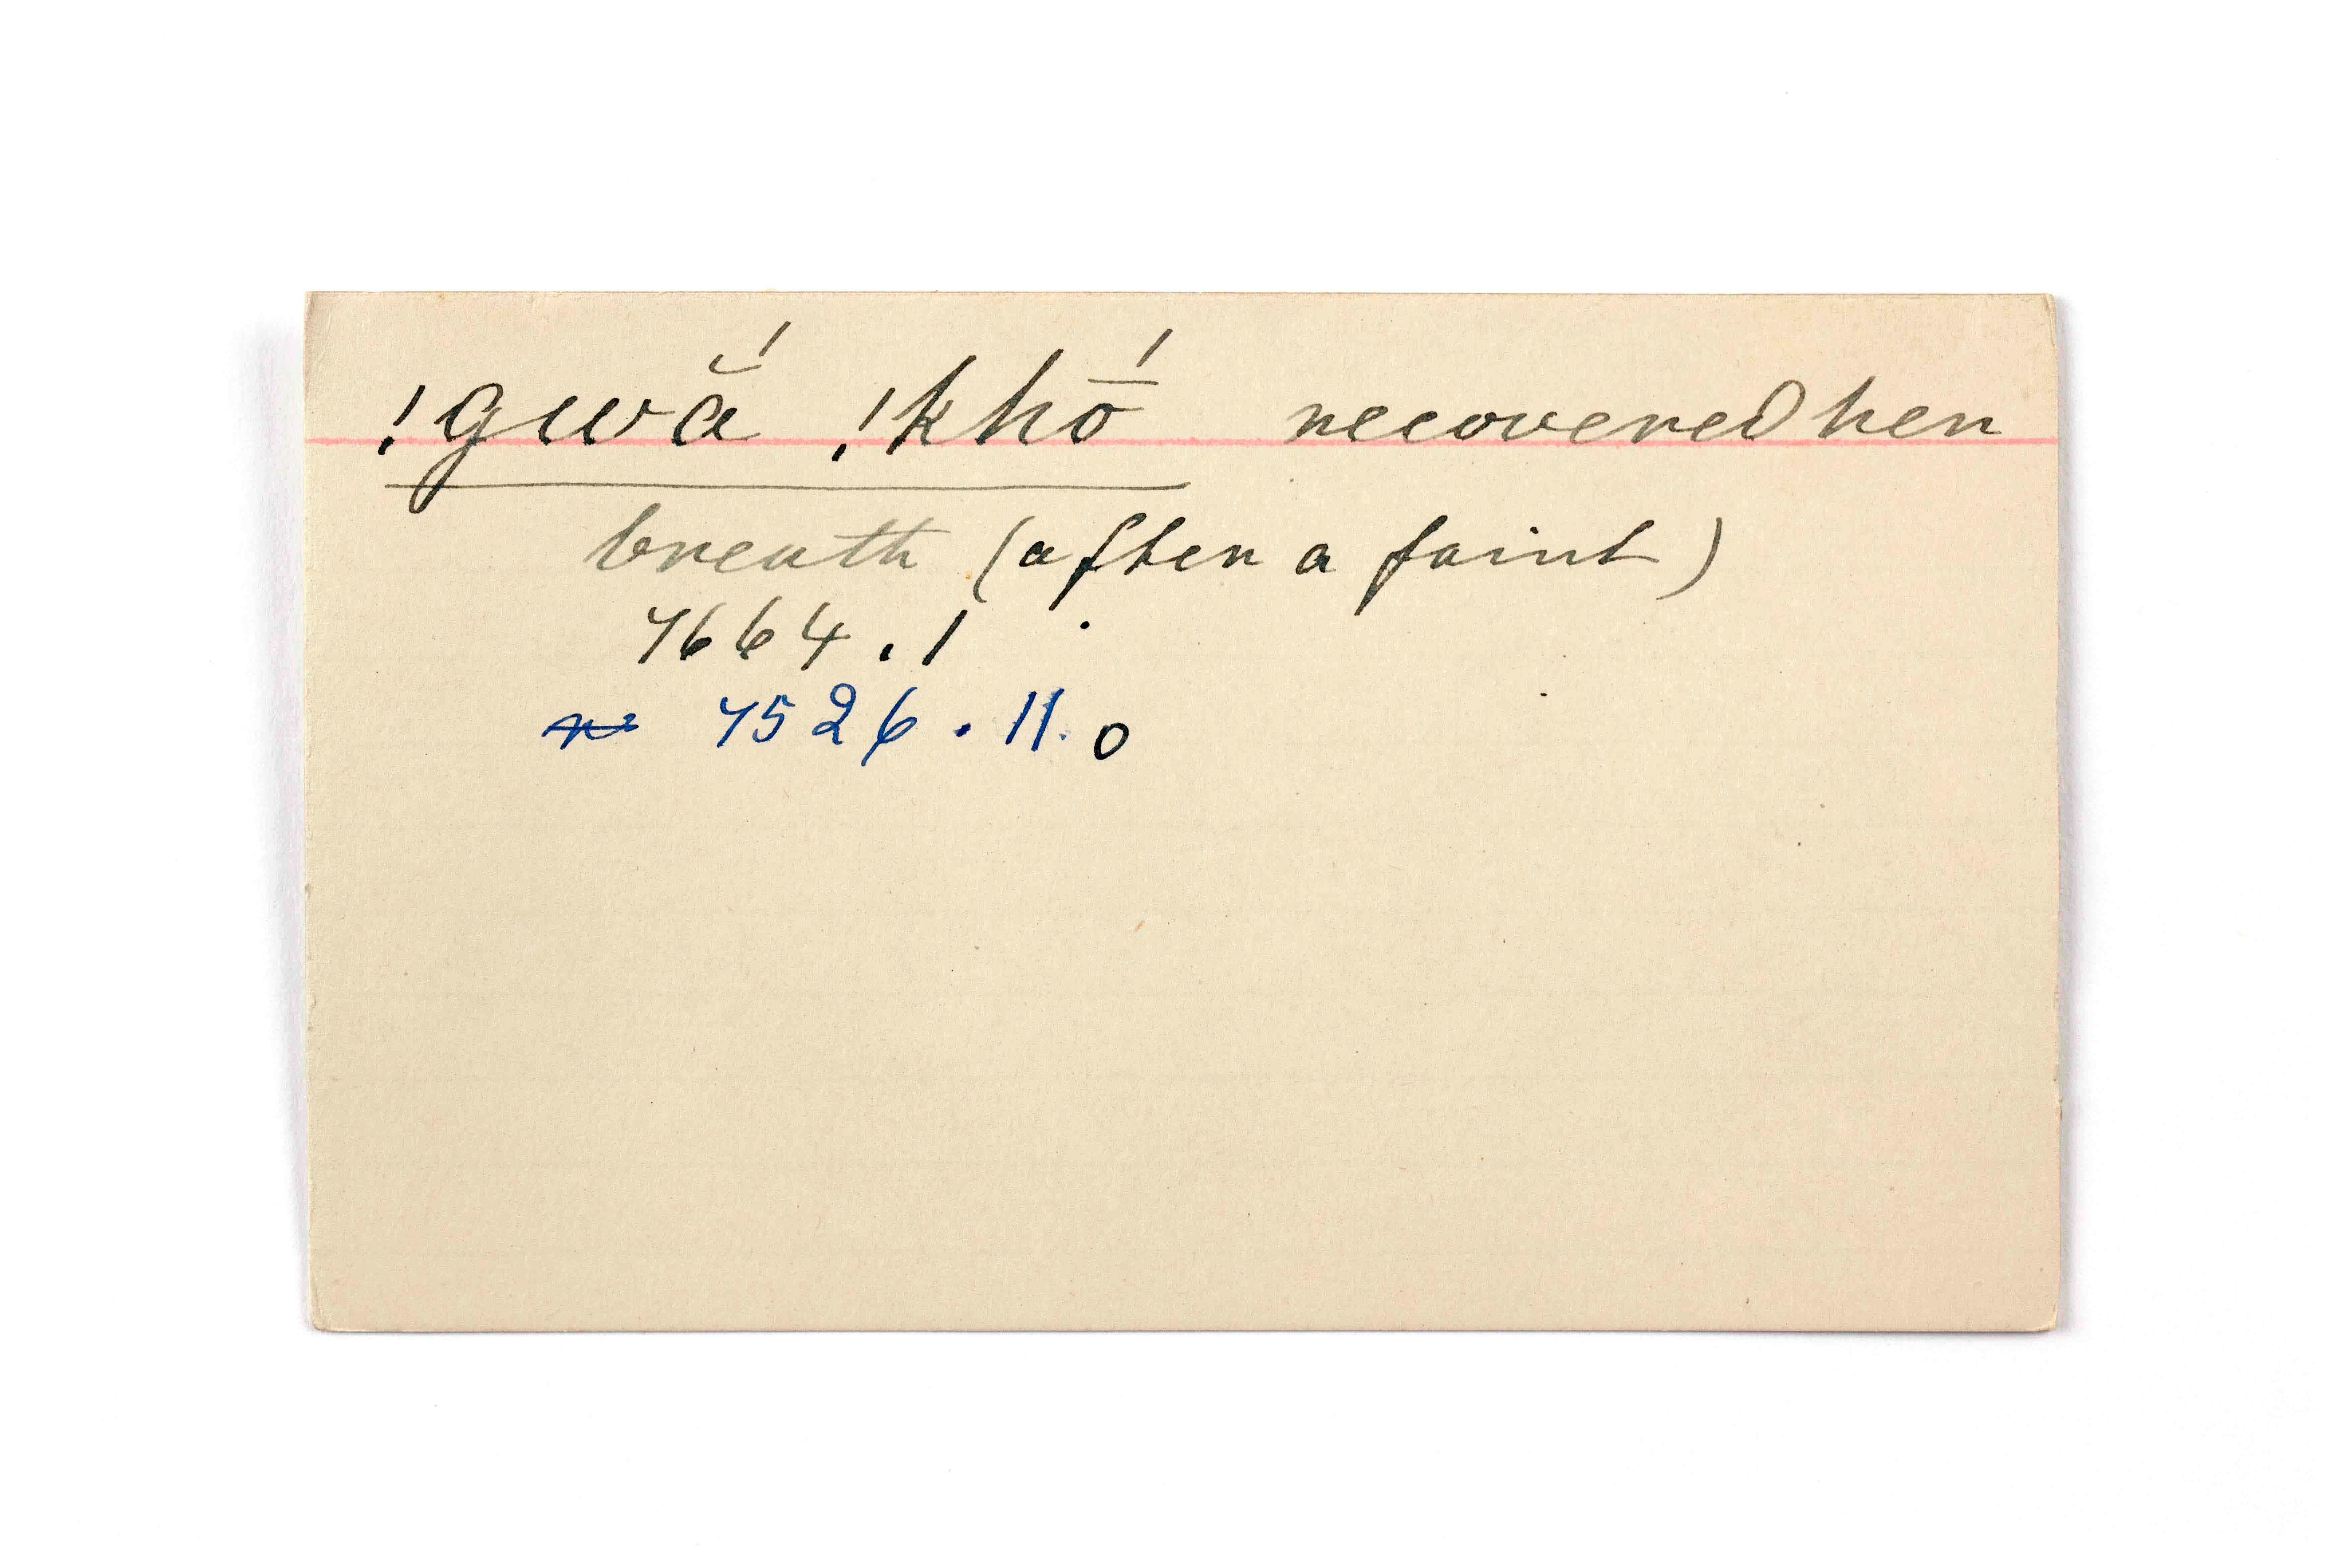 !gwắ !khṓ recovered her
breath (after a faint)
7664.1
7526.11.0